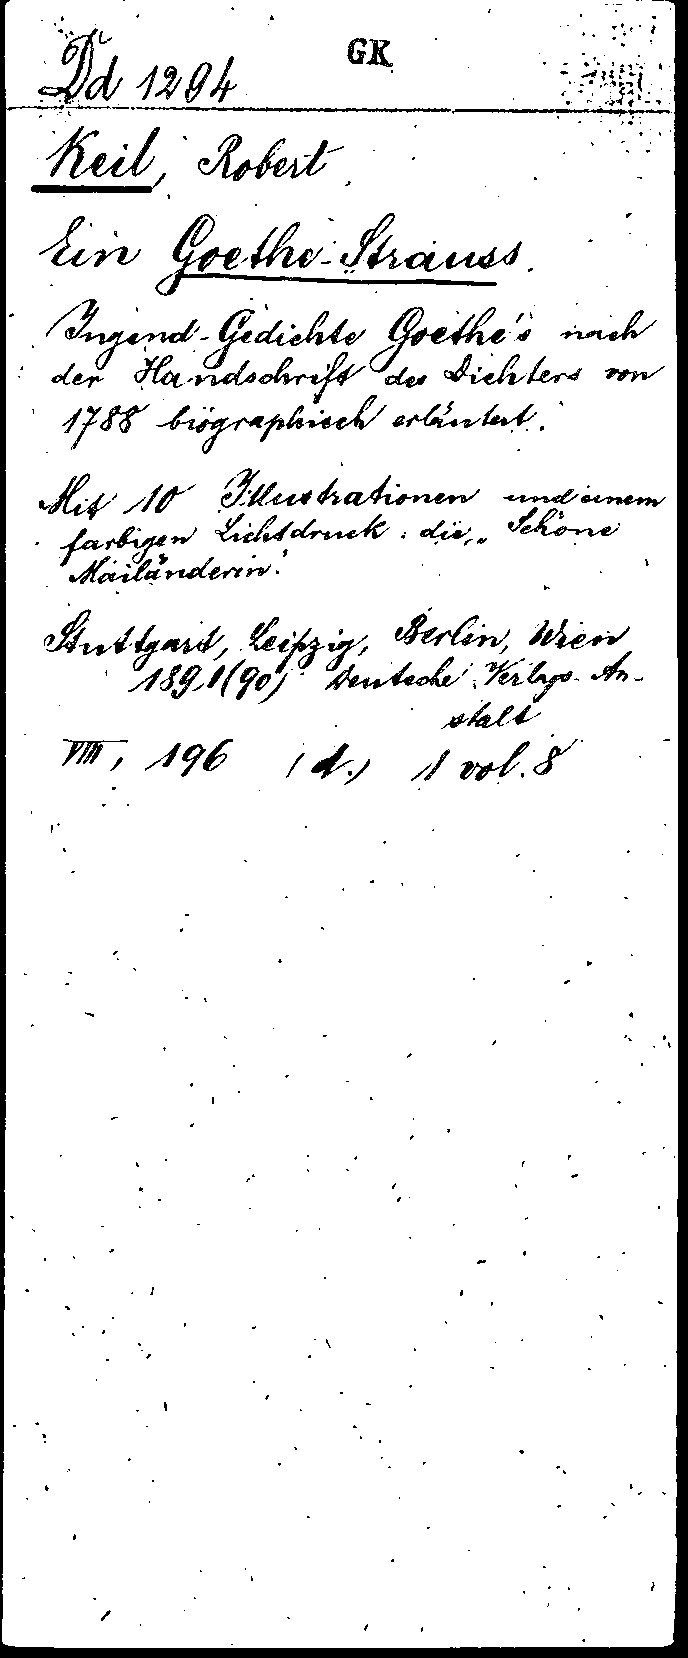 GK
Dd 1294
Keil, Robert
Ein Goethe-Strauss.
Jugend-Gedichte Goethe's nach
der Handschrift des Dichters von
1788 biographisch erläutert.
Mit 10 Illustrationen und einem
farbigen Lichtdruck: die „Schöne
Mailänderin."
Stuttgart, Leipzig, Berlin, Wien
1891(90) Deutsche Verlags-An-
stalt
VIII, 196 (d.) 1 vol. 8